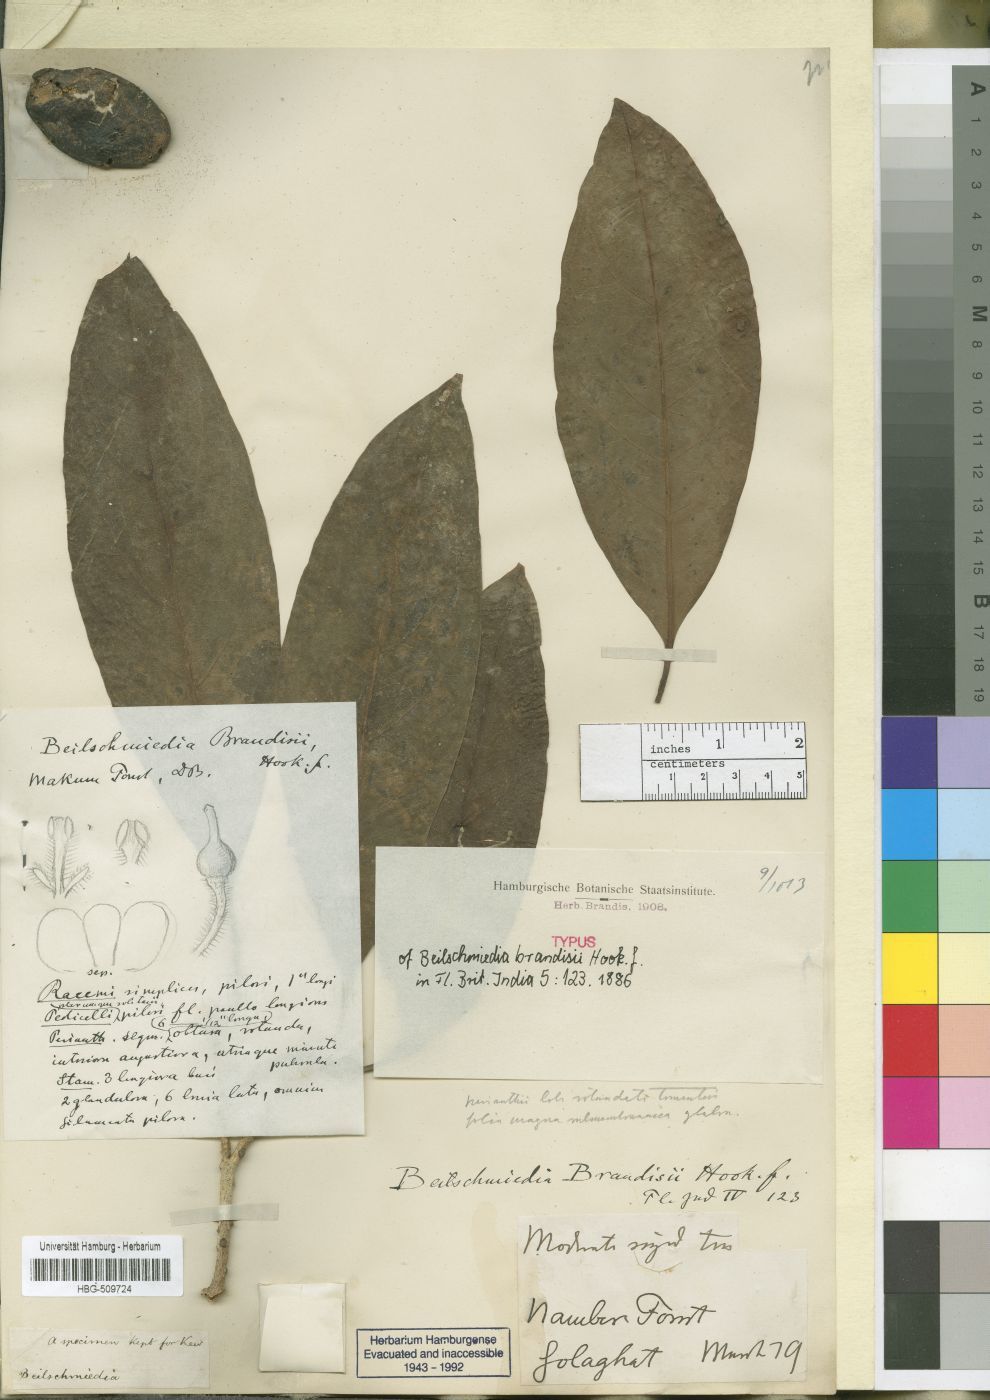 Beilschmiedia Brandisii,
Hook. f.
Makum Forest, DB.
sep.
Racemi simplices, pilosi, 1" longi
plerumque solitarii
Pedicelli pilosi fl. paullo longiores
Perianth. segm. 6 obtusa, rotunda,
interiora angustiora, utrinque minute
puberula.
Stam. 3 longiora basi
2 glandulosa, 6 lata, omnium
filamenta pilosa.
Hamburgische Botanische Staatsinstitute.
Herb. Brandis, 1908.
9/1013
TYPUS
of Beilschmiedia brandisii Hook. f.
in Fl. Brit. India 5: 123. 1886
perianthii lobi rotundati tomentosi
folia magna submembranacea glabra.
Beilschmiedia Brandisii Hook. f.
Fl. Ind IV 123
Moderate sized tree
Nambor Forest
Golaghat March 79
inches 1 2
centimeters
1 2 3 4 5
Universität Hamburg - Herbarium
HBG-509724
A specimen kept for Kew
Beilschmiedia
Herbarium Hamburgense
Evacuated and inaccessible
1943 - 1992
A
1
2
3
4
5
6
M
8
9
10
11
12
13
14
15
B
17
18
19